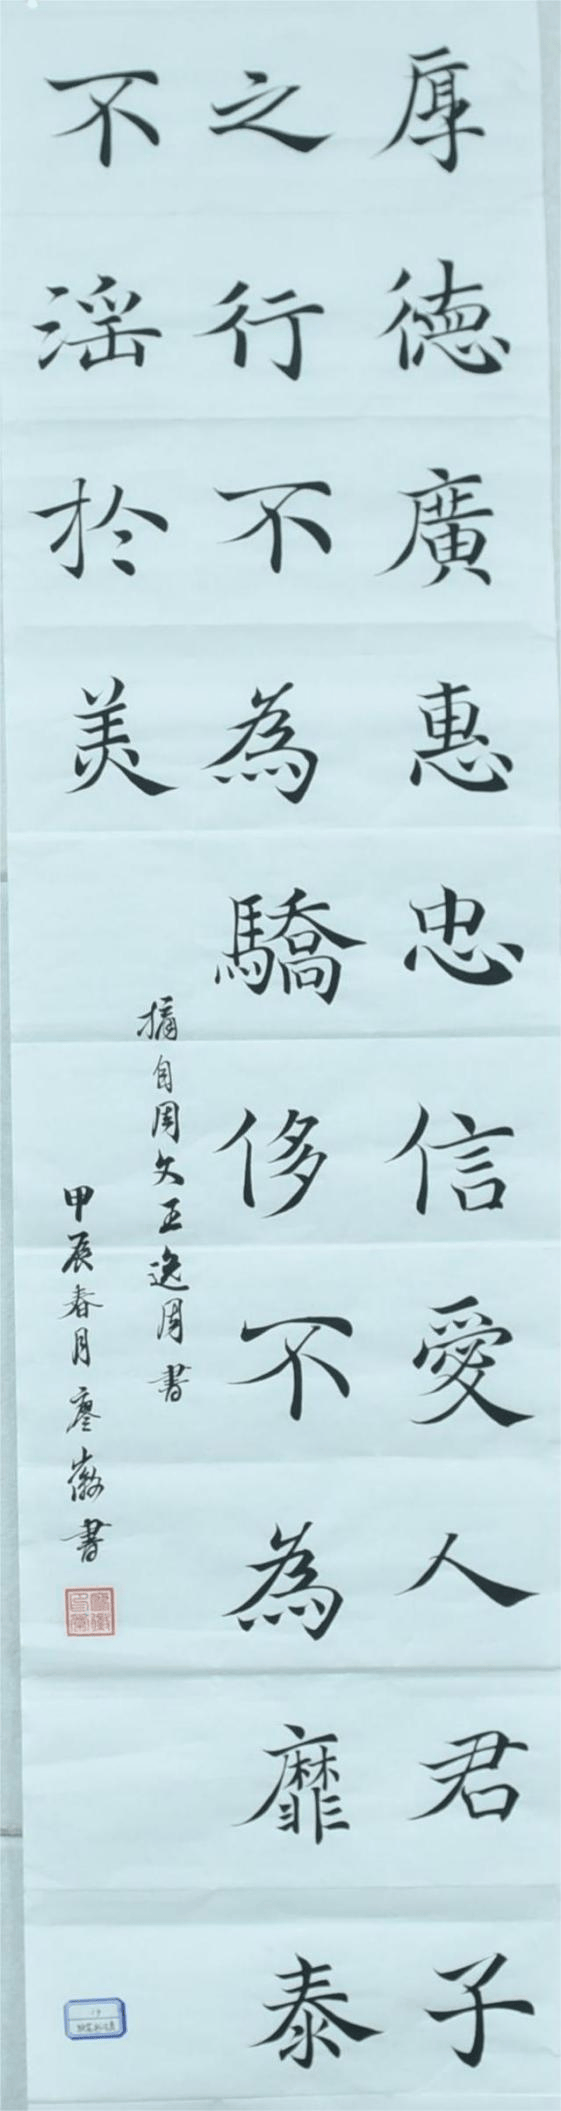 厚德廣惠忠信愛人君子
之行不為驕侈不為靡泰
不淫於美
摘自周文王逸周書
甲辰春月廖徽書